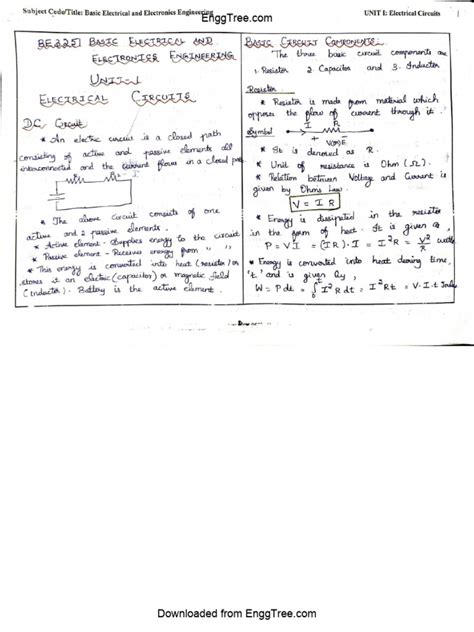 Subject Code/Title: Basic Electrical and Electronics Engineering
EnggTree.com
UNIT I: Electrical Circuits
BE3251 BASIC ELECTRICAL AND
ELECTRONICS ENGINEERING
UNIT-I
ELECTRICAL CIRCUITS
DC Circuit
* An electric circuit is a closed path
consisting of active and passive elements all
interconnected and the current flows in a closed path.
R1 R2 I
* The above circuit consists of one
active and 2 passive elements.
* Active element - Supplies energy to the circuit
* Passive element - Receives energy from " "
* This energy is converted into heat (resistor) or
stores it in electric (capacitor) or magnetic field
(Inductor). Battery is the active element.
BASIC CIRCUIT COMPONENTS:
The three basic circuit components are
1. Resistor 2. Capacitor and 3. Inductor
Resistor
* Resistor is made from material which
opposes the flow of current through it.
Symbol
I R
+ -
V(or)E
* It is denoted as R.
* Unit of resistance is Ohm (Ω).
* Relation between Voltage and Current is
given by Ohms Law
V = I R
* Energy is dissipated in the resistor
in the form of heat. It is given by
P = V I = (IR) · I = I²R = V²/R watts
* Energy is converted into heat during time
't' and is given by,
W = P dt = ∫₀ᵗ I² R dt = I² R t = V · I · t Joules
Downloaded from EnggTree.com